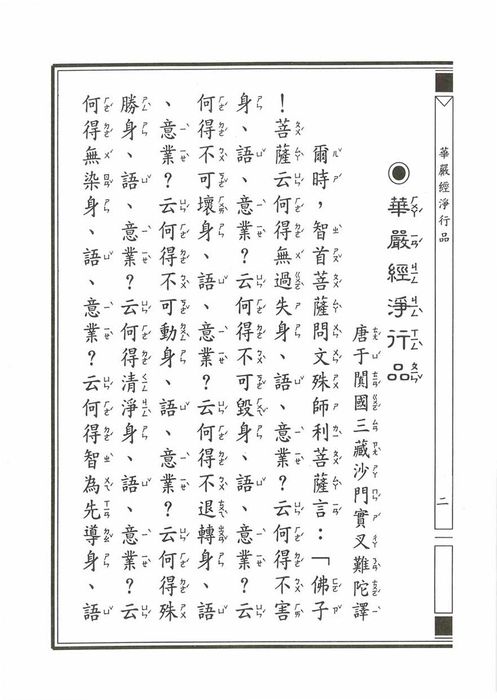 華嚴經淨行品
二
華嚴經淨行品
唐于闐國三藏沙門實叉難陀譯
爾時，智首菩薩問文殊師利菩薩言：「佛子
！菩薩云何得無過失身、語、意業？云何得不害
身、語、意業？云何得不可毀身、語、意業？云
何得不可壞身、語、意業？云何得不退轉身、語
、意業？云何得不可動身、語、意業？云何得殊
勝身、語、意業？云何得清淨身、語、意業？云
何得無染身、語、意業？云何得智為先導身、語